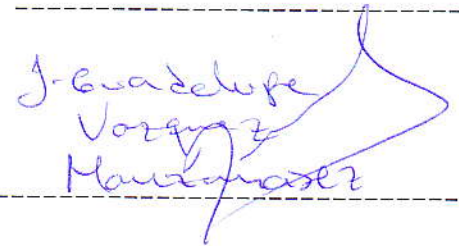 J. Guadelupe
Vazquez
Manzanarez